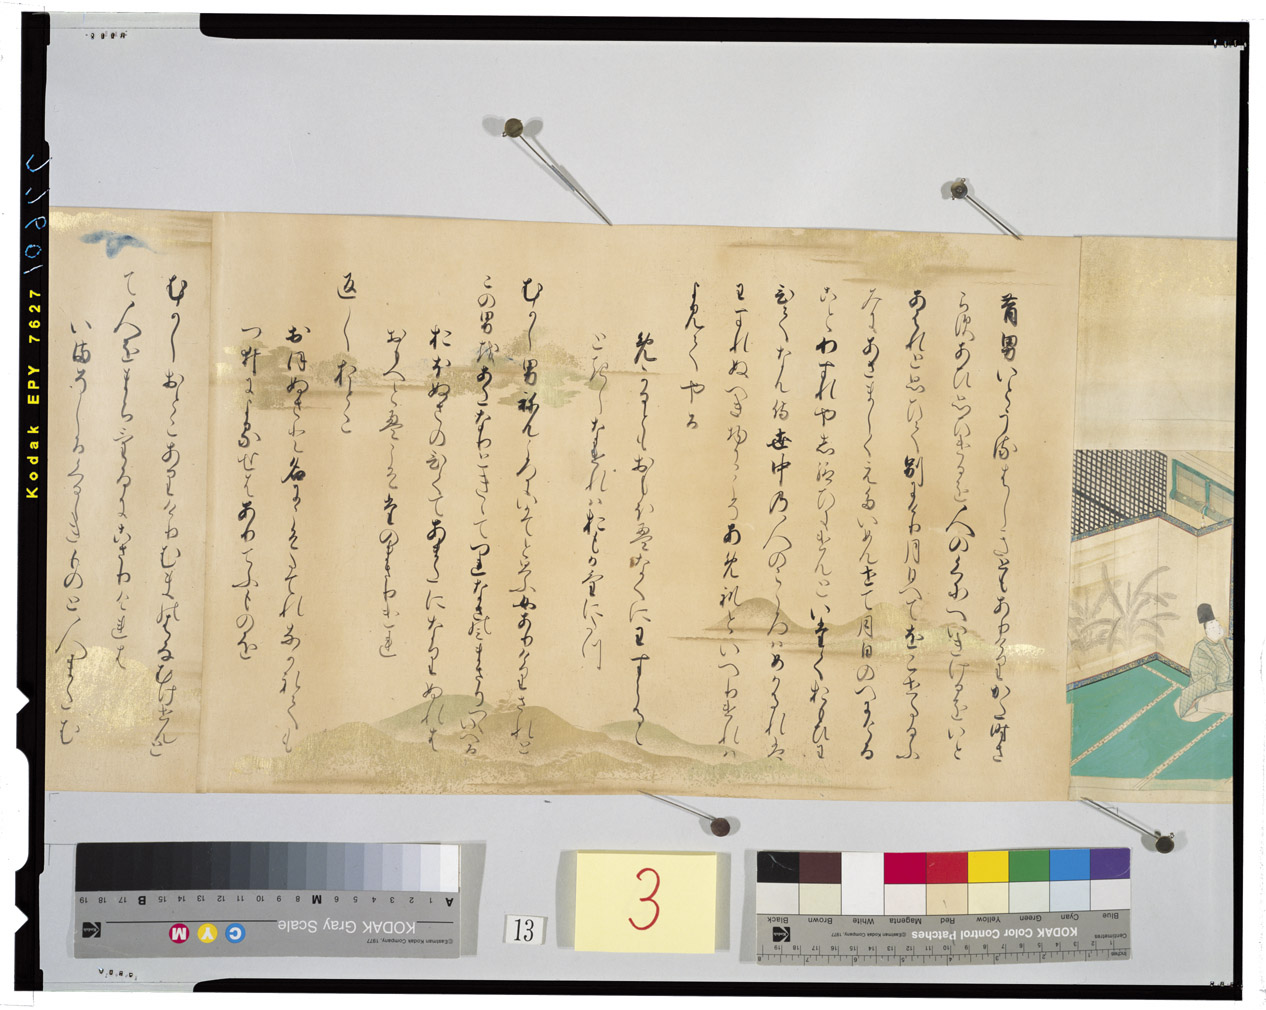 昔男いとうるはしきともありけりかた時さ
らすあひ思ひけるを人のくにへいきけるをいと
あはれと思ひて別にけり月日へてをこせたるふ
みにあさましくえたいめんせて月日のへにける
ことわすれやし給ひにけんといたくおもひわ
ひてなん侍世中の人のこゝろはめかるれは
わすれぬへき物にこそあめれといへりけれは
よみてやる
めかるともおもほえなくにわすらるゝ
ときしなけれはおもかけにたつ
むかし男ねんころにいかてと思ふ女ありけりされと
この男をあたなりときゝてつれなさのみまさりつゝいへる
おほぬさのひくてあまたになりぬれは
おもへとえこそたのまさりけれ
返しおとこ
おほぬさと名にこそたてれなかれても
つゐによるせはありてふものを
むかしおとこありけりむまのはなむけせんと
て人をまちけるにこさりけれは
いまそしるくるしきものと人またむ
Kodak EPY 7627
10916
3
13
KODAK Gray Scale
©Eastman Kodak Company, 1977
KODAK Color Control Patches
©Eastman Kodak Company, 1977
Blue Cyan Green Yellow Red Magenta White Brown Black
Centimetres
Inches